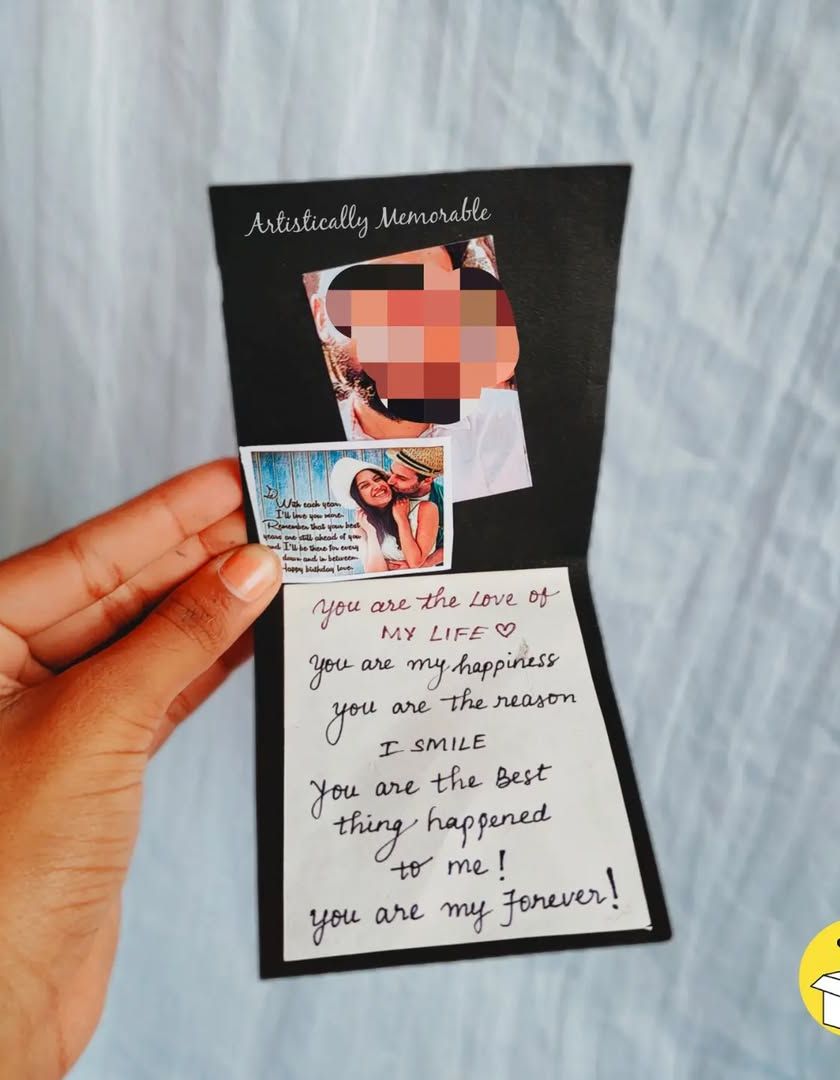 Artistically Memorable
With each year,
I'll love you more.
Remember that your best
years are still ahead of you
and I'll be there for every
down and in between.
Happy birthday love.
You are the Love of
MY LIFE ♡
You are my happiness
you are the reason
I SMILE
You are the Best
thing happened
to me!
you are my Forever!